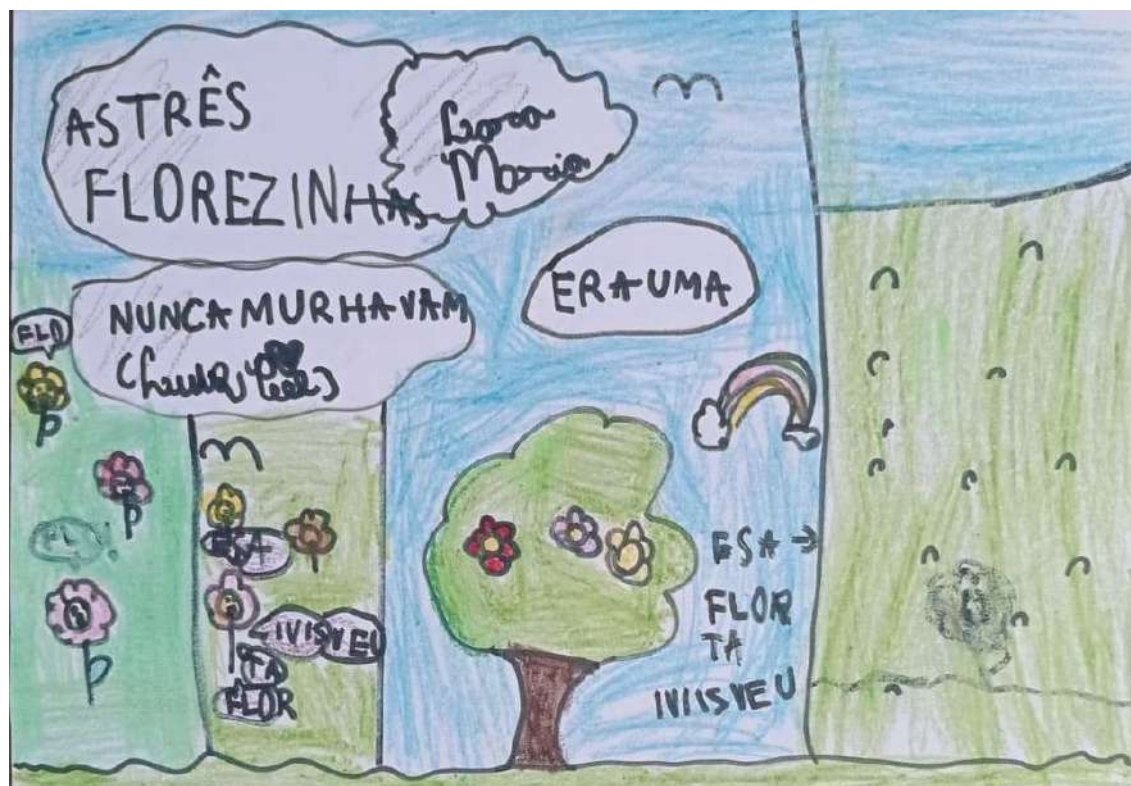 AS TRÊS
FLOREZINHAS
Maria
NUNCA MURHAVAM
ERA UMA
FLO
ESA
IVISVEU
TA
FLOR
ESA →
FLOR
TA
IVIISVEU